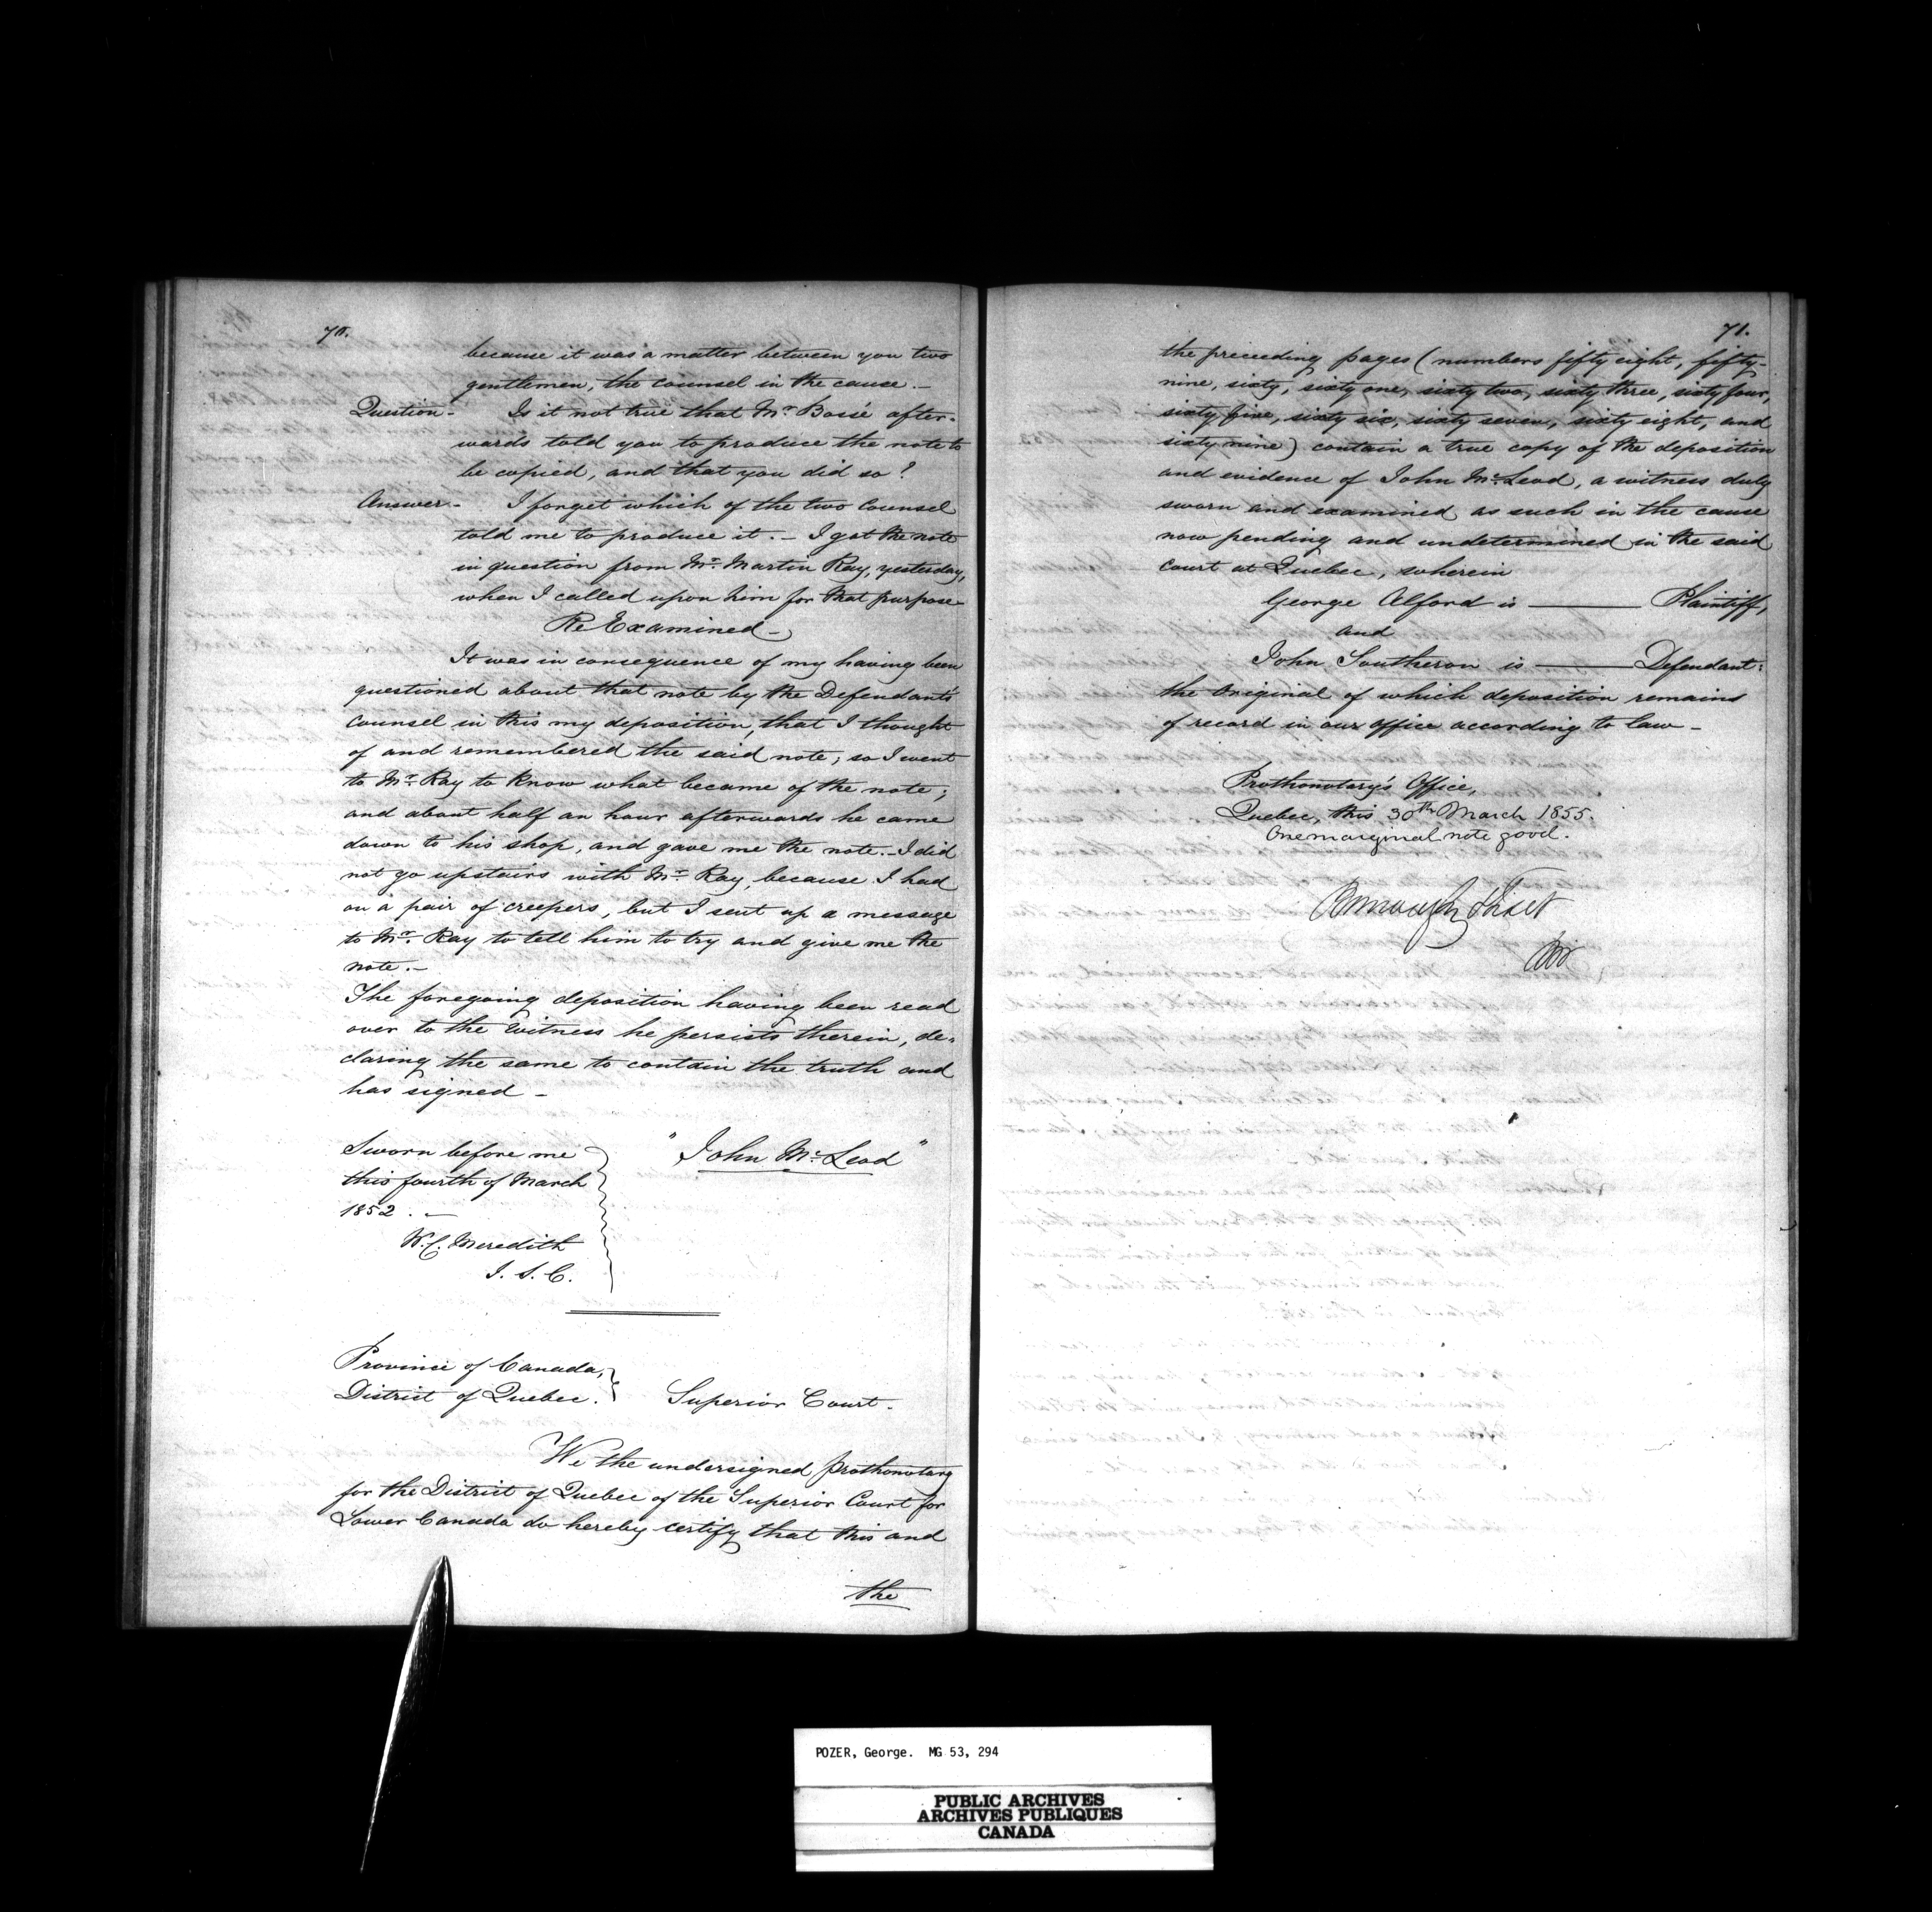 70.
because it was a matter between you two
gentlemen, the counsel in the cause.—
Question - Is it not true that Mr. Bossé after-
wards told you to produce the note to
be copied, and that you did so?
Answer - I forget which of the two Counsel
told me to produce it. — I got the note
in question from Mr. Martin Ray, yesterday,
when I called upon him for that purpose -
Re Examined -
It was in consequence of my having been
questioned about that note by the Defendant's
Counsel in this my deposition, that I thought
of and remembered the said note; so I went
to Mr. Ray to know what became of the note;
and about half an hour afterwards he came
down to his shop, and gave me the note. — I did
not go upstairs with Mr. Ray, because I had
on a pair of creepers, but I sent up a message
to Mr. Ray to tell him to try and give me the
note. —
The foregoing deposition having been read
over to the Witness he persists therein, de-
claring the same to contain the truth and
has signed -
Sworn before me
this fourth of March
1852. —
W. C. Meredith
J. S. C.
"John Mc. Leod"
Province of Canada,
District of Quebec. Superior Court.
We the undersigned Prothonotary
for the District of Quebec of the Superior Court for
Lower Canada do hereby certify that this and
the
71.
the preceeding pages (numbers fifty eight, fifty-
nine, sixty, sixty one, sixty two, sixty three, sixty four,
sixty five, sixty six, sixty seven, sixty eight, and
sixty nine) contain a true copy of the deposition
and evidence of John Mc. Leod, a witness duly
sworn and examined as such in the cause
now pending and undetermined in the said
Court at Quebec, wherein
George Alford is ——— Plaintiff,
and
John Southeron is ——— Defendant:
the Original of which deposition remains
of record in our Office according to law -
Prothonotary's Office,
Quebec, this 30th March 1855.
One marginal note good.
Burroughs Fiset
POZER, George. MG 53, 294
PUBLIC ARCHIVES
ARCHIVES PUBLIQUES
CANADA